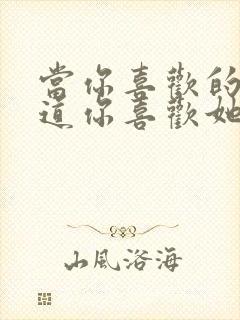 當你喜歡的
道你喜歡她
山風洛海